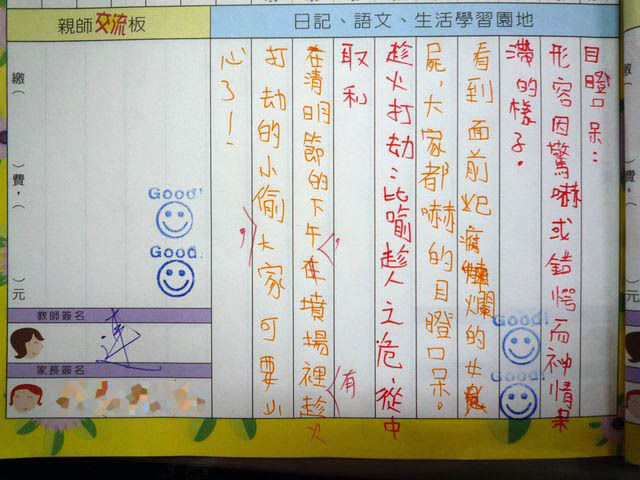 親師交流板
日記、語文、生活學習園地
目瞪口呆：
形容因驚嚇或錯愕而神情呆
滯的樣子。
看到面前妃腐爛的女
屍，大家都嚇的目瞪口呆。
趁火打劫：比喻趁人之危，從中
取利
在清明節的下午，在墳場裡有趁火
打劫的小偷，大家可要小
心了！
繳（　）費，（　）元
Good!
Good!
Good!
Good!
教師簽名
連
家長簽名
繳
費，
元